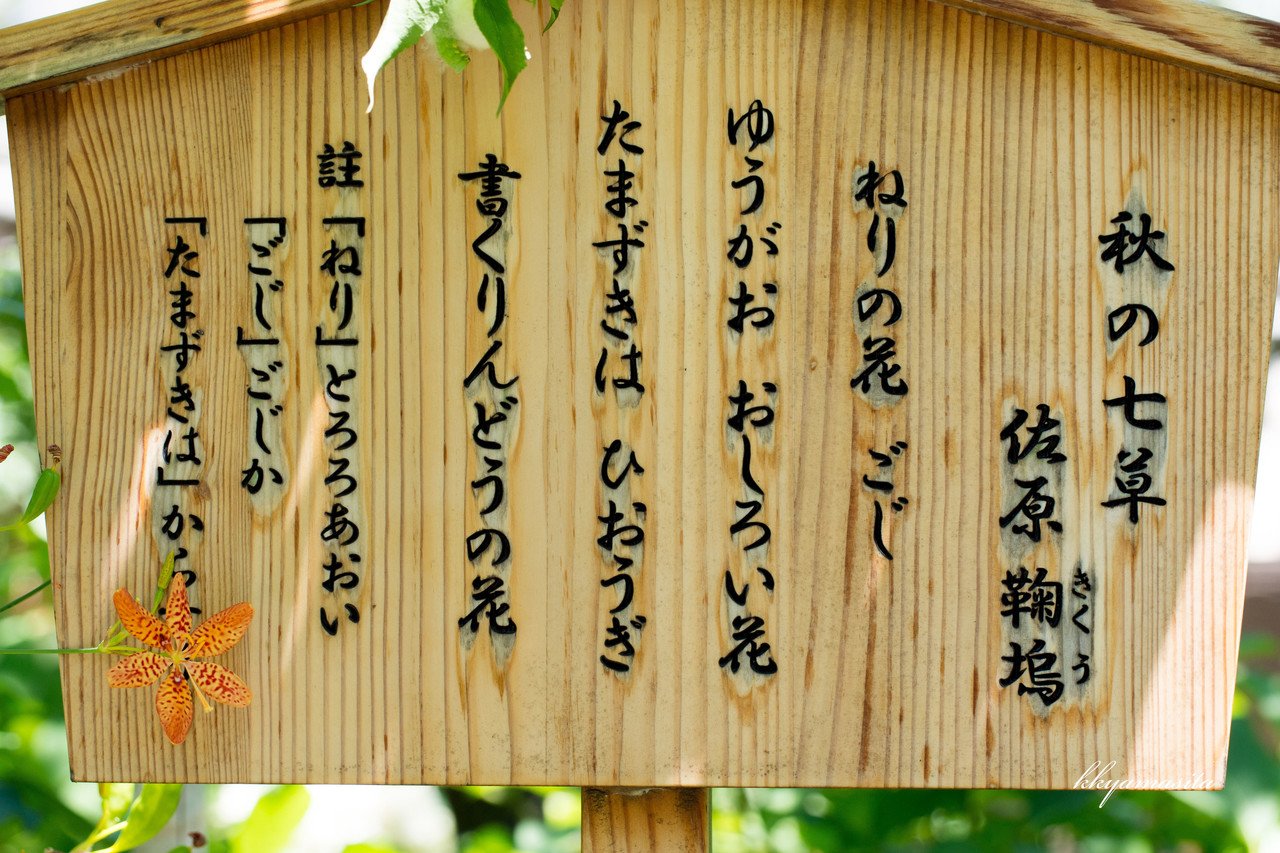 秋の七草
佐原 鞠塢
きくう
ねりの花 ごじ
ゆうがお おしろい花
たまずきは ひおうぎ
書くりんどうの花
註「ねり」とろろあおい
「ごじ」ごじか
「たまずきは」から
kkyamasita